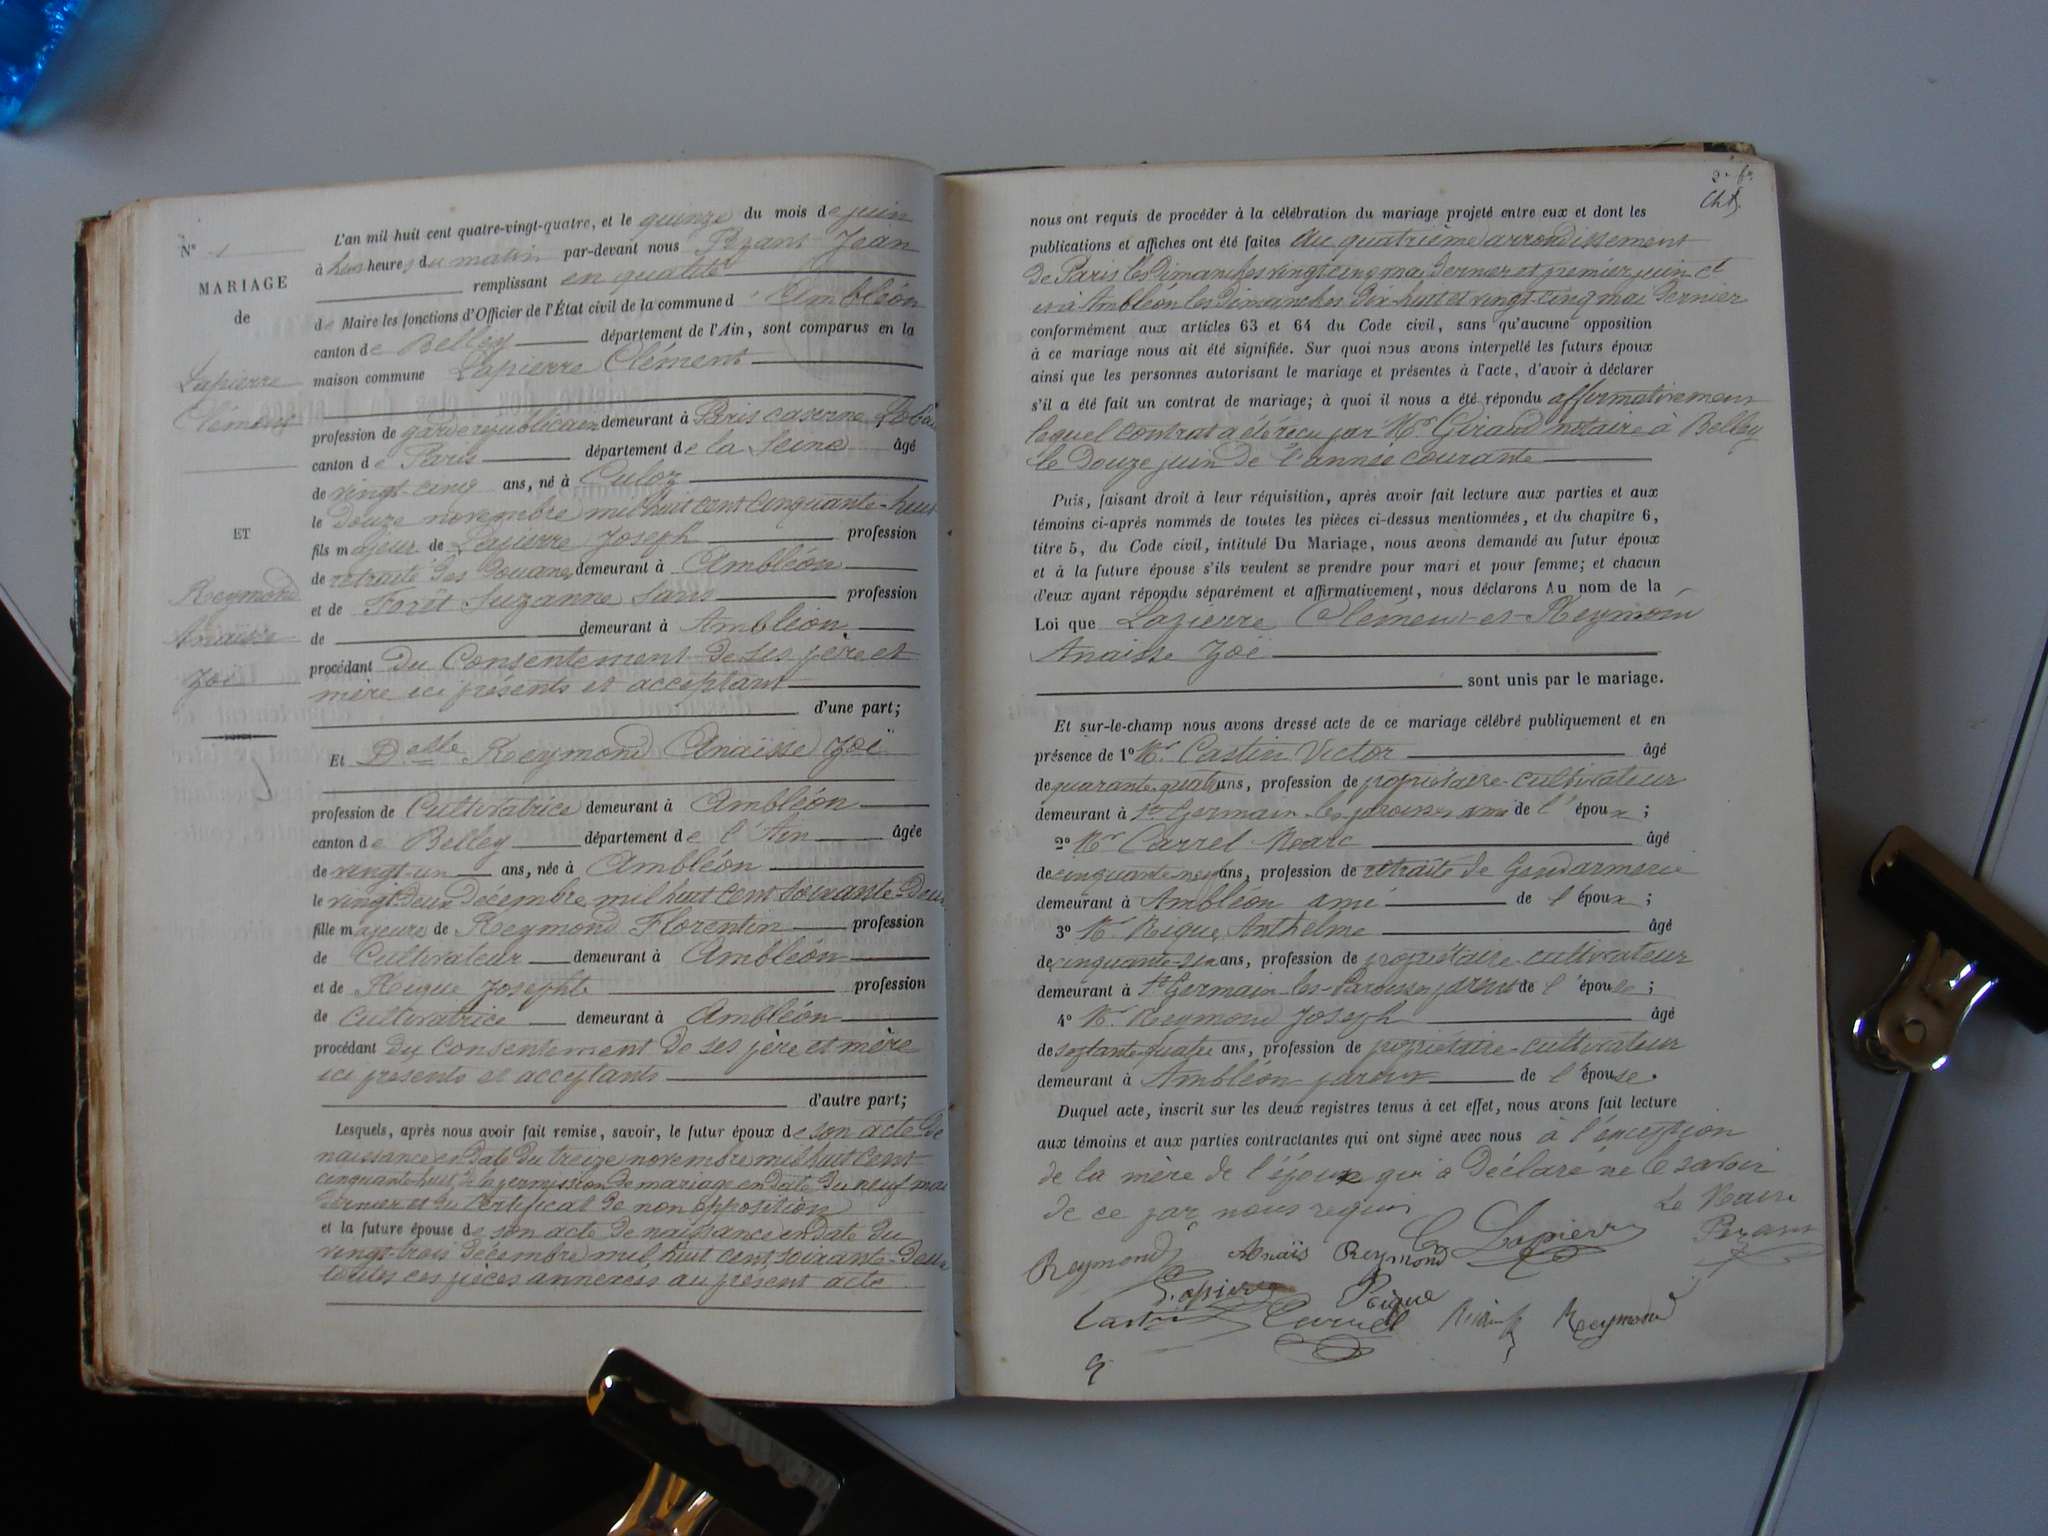 N° 1
MARIAGE
de
Lapierre
Clément
ET
Reymond
Anaïsse
Zoé
L'an mil huit cent quatre-vingt-quatre, et le quinze du mois de juin
à huit heures du matin par-devant nous Jean
remplissant en qualité
de Maire les fonctions d'Officier de l'État civil de la commune d'Ambléon
canton de Belley département de l'Ain, sont comparus en la
maison commune Lapierre Clément
profession de garde républicain demeurant à Paris caserne
canton de Paris département de la Seine âgé
de vingt-cinq ans, né à Culoz
le douze novembre mil huit cent cinquante-huit
fils majeur de Lapierre Joseph profession
de retraité des Douanes demeurant à Ambléon
et de Forêt Suzanne sans profession
de demeurant à Ambléon
procédant du Consentement de ses père et
mère ici présents et acceptant
d'une part;
Et Delle Reymond Anaïsse Zoé
profession de Cultivatrice demeurant à Ambléon
canton de Belley département de l'Ain âgée
de vingt-un ans, née à Ambléon
le vingt-deux décembre mil huit cent soixante-deux
fille majeure de Reymond Florentin profession
de Cultivateur demeurant à Ambléon
et de Rique Josephte profession
de Cultivatrice demeurant à Ambléon
procédant du Consentement de ses père et mère
ici présents et acceptants
d'autre part;
Lesquels, après nous avoir fait remise, savoir, le futur époux de son acte de
naissance en date du treize novembre mil huit cent
cinquante-huit de la permission de mariage en date du neuf mai
dernier et du certificat de non opposition
et la future épouse de son acte de naissance en date du
vingt-trois décembre mil huit cent soixante-deux
toutes ces pièces annexées au présent acte
nous ont requis de procéder à la célébration du mariage projeté entre eux et dont les
publications et affiches ont été faites au quatrième arrondissement
de Paris les Dimanches vingt cinq mai dernier et premier juin ct
et à Ambléon les Dimanches dix-huit et vingt-cinq mai dernier
conformément aux articles 63 et 64 du Code civil, sans qu'aucune opposition
à ce mariage nous ait été signifiée. Sur quoi nous avons interpellé les futurs époux
ainsi que les personnes autorisant le mariage et présentes à l'acte, d'avoir à déclarer
s'il a été fait un contrat de mariage; à quoi il nous a été répondu affirmativement
lequel contrat a été reçu par Mr Giraud notaire à Belley
le douze juin de l'année courante
Puis, faisant droit à leur réquisition, après avoir fait lecture aux parties et aux
témoins ci-après nommés de toutes les pièces ci-dessus mentionnées, et du chapitre 6,
titre 5, du Code civil, intitulé Du Mariage, nous avons demandé au futur époux
et à la future épouse s'ils veulent se prendre pour mari et pour femme; et chacun
d'eux ayant répondu séparément et affirmativement, nous déclarons Au nom de la
Loi que Lapierre Clément et Reymond
Anaisse Zoé
sont unis par le mariage.
Et sur-le-champ nous avons dressé acte de ce mariage célébré publiquement et en
présence de 1° Mr Castin Victor âgé
de quarante quatre ans, profession de propriétaire-cultivateur
demeurant à St Germain les paroisses ami de l'époux;
2° Mr Carrel Marc âgé
de cinquante-neuf ans, profession de retraité de Gendarmerie
demeurant à Ambléon ami de l'époux;
3° Mr Rique Anthelme âgé
de cinquante-six ans, profession de propriétaire-cultivateur
demeurant à St Germain-les-Paroisses parent de l'épouse;
4° Mr Reymond Joseph âgé
de septante-quatre ans, profession de propriétaire-cultivateur
demeurant à Ambléon parent de l'épouse.
Duquel acte, inscrit sur les deux registres tenus à cet effet, nous avons fait lecture
aux témoins et aux parties contractantes qui ont signé avec nous à l'exception
de la mère de l'époux qui a déclaré ne le savoir
de ce par nous requis
Le Maire
Reymond Anaïs Reymond C Lapierre
Lapierre Rique
Castin Carrel Reymond